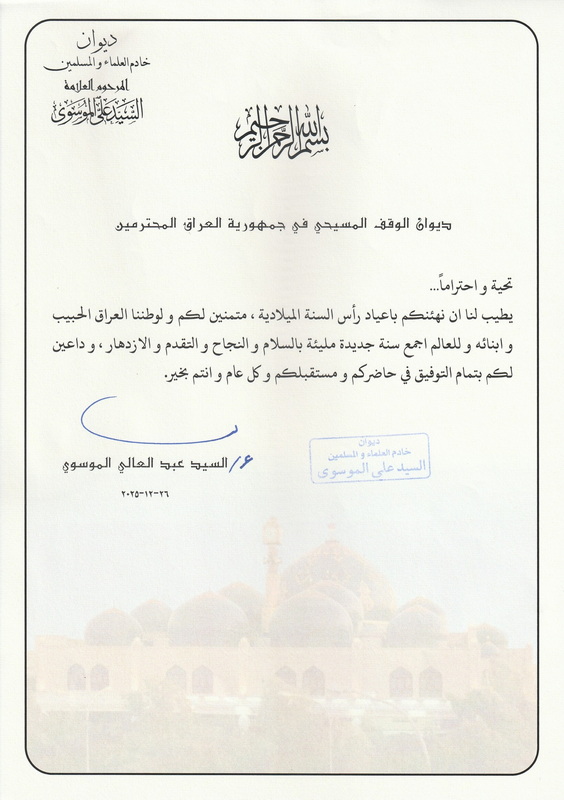 ديوان
خادم العلماء و المسلمين
المرحوم العلامة
السيد علي الموسوي
بسم الله الرحمن الرحيم
ديوان الوقف المسيحي في جمهورية العراق المحترمين
تحية و احتراماً...
يطيب لنا ان نهئنكم باعياد رأس السنة الميلادية ، متمنين لكم و لوطننا العراق الحبيب
و ابنائه و للعالم اجمع سنة جديدة مليئة بالسلام و النجاح و التقدم و الازدهار ، و داعين
لكم بتمام التوفيق في حاضركم و مستقبلكم و كل عام و انتم بخير.
ع/ السيد عبد العالي الموسوي
٢٠٢٥-١٢-٢٦
ديوان
خادم العلماء و المسلمين
السيد علي الموسوي